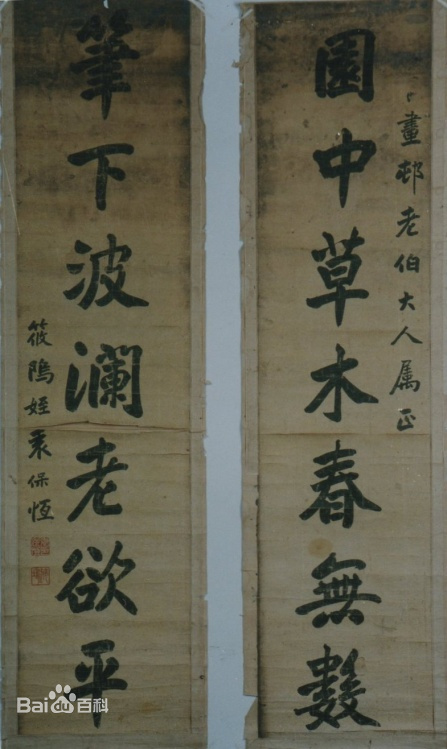 畫邨老伯大人属正
園中草木春無數
筆下波瀾老欲平
筱隖姪袁保恆
Bai百科